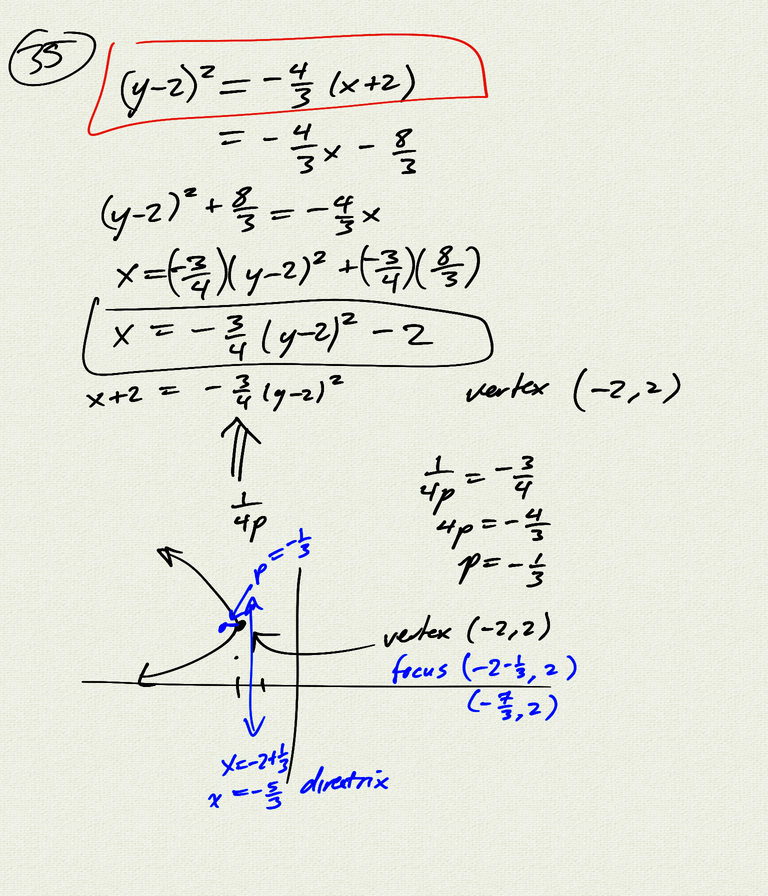 35
(y-2)² = -4/3 (x+2)
= -4/3 x - 8/3
(y-2)² + 8/3 = -4/3 x
x = (-3/4)(y-2)² + (-3/4)(8/3)
x = -3/4 (y-2)² - 2
x+2 = -3/4 (y-2)²
vertex (-2, 2)
1/4p
1/4p = -3/4
4p = -4/3
p = -1/3
p = -1/3
vertex (-2, 2)
focus (-2-1/3, 2)
(-7/3, 2)
x = -2+1/3
x = -5/3 directrix